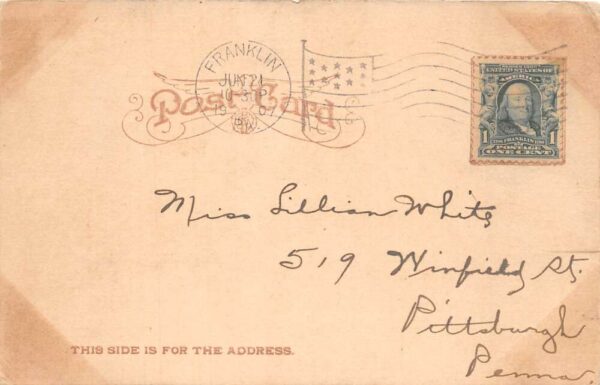 FRANKLIN
JUN 21
1907
PA
Post Card
UNITED STATES OF
AMERICA
1 1
FRANKLIN
POSTAGE
ONE CENT
Miss Lillian White
519 Winfield St.
Pittsburgh
Penna.
THIS SIDE IS FOR THE ADDRESS.